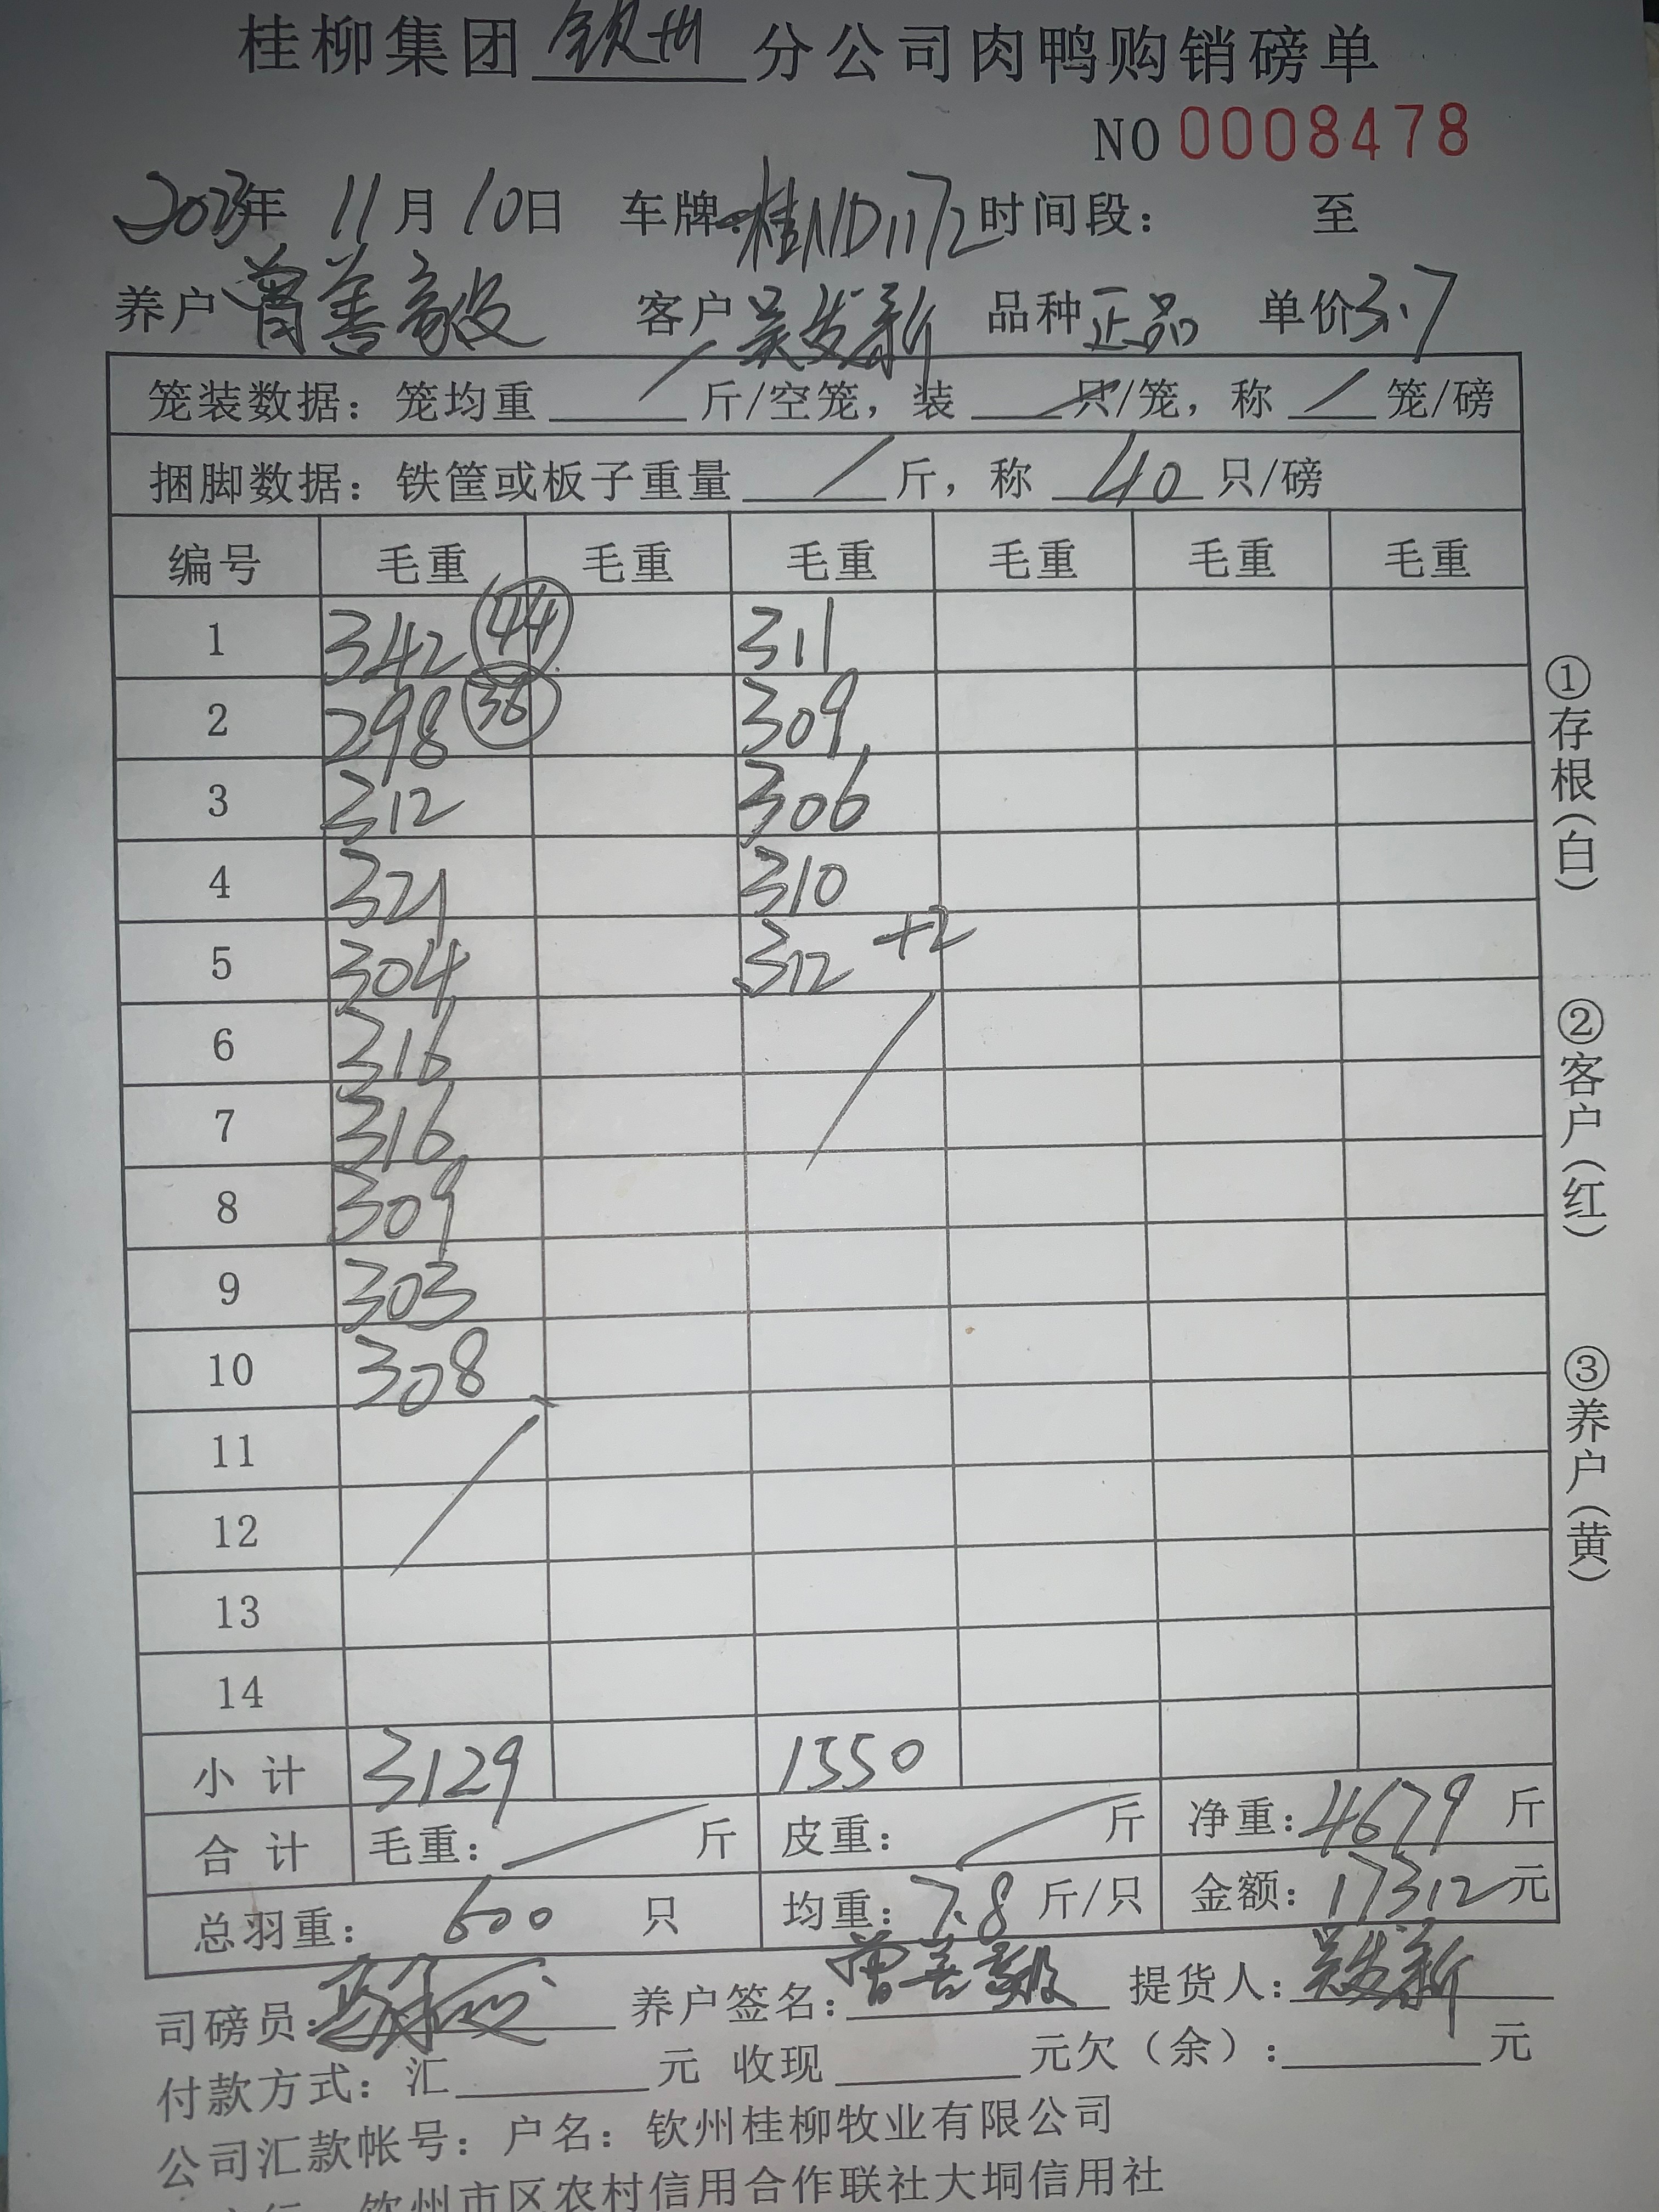 桂柳集团 钦州 分公司肉鸭购销磅单
NO 0008478
2023年 11月 10日 车牌:桂ND1172 时间段: 至
养户 曾善毅 客户 吴发新 品种 正品 单价 3.7
笼装数据:笼均重 / 斤/空笼,装 / 只/笼,称 / 笼/磅
捆脚数据:铁筐或板子重量 / 斤,称 40 只/磅
编号 毛重 毛重 毛重 毛重 毛重 毛重
1 342 44 311
2 298 36 309
3 312 306
4 321 310
5 304 312 +2
6 316
7 316
8 309
9 303
10 308
11
12
13
14
小计 3129 1550
合计 毛重: / 斤 皮重: / 斤 净重:4679 斤
总羽重: 600 只 均重:7.8 斤/只 金额:17312元
司磅员: 养户签名:曾善毅 提货人:吴发新
付款方式:汇 元 收现 元欠(余): 元
公司汇款帐号:户名:钦州桂柳牧业有限公司
钦州市区农村信用合作联社大垌信用社
①存根(白)
②客户(红)
③养户(黄)